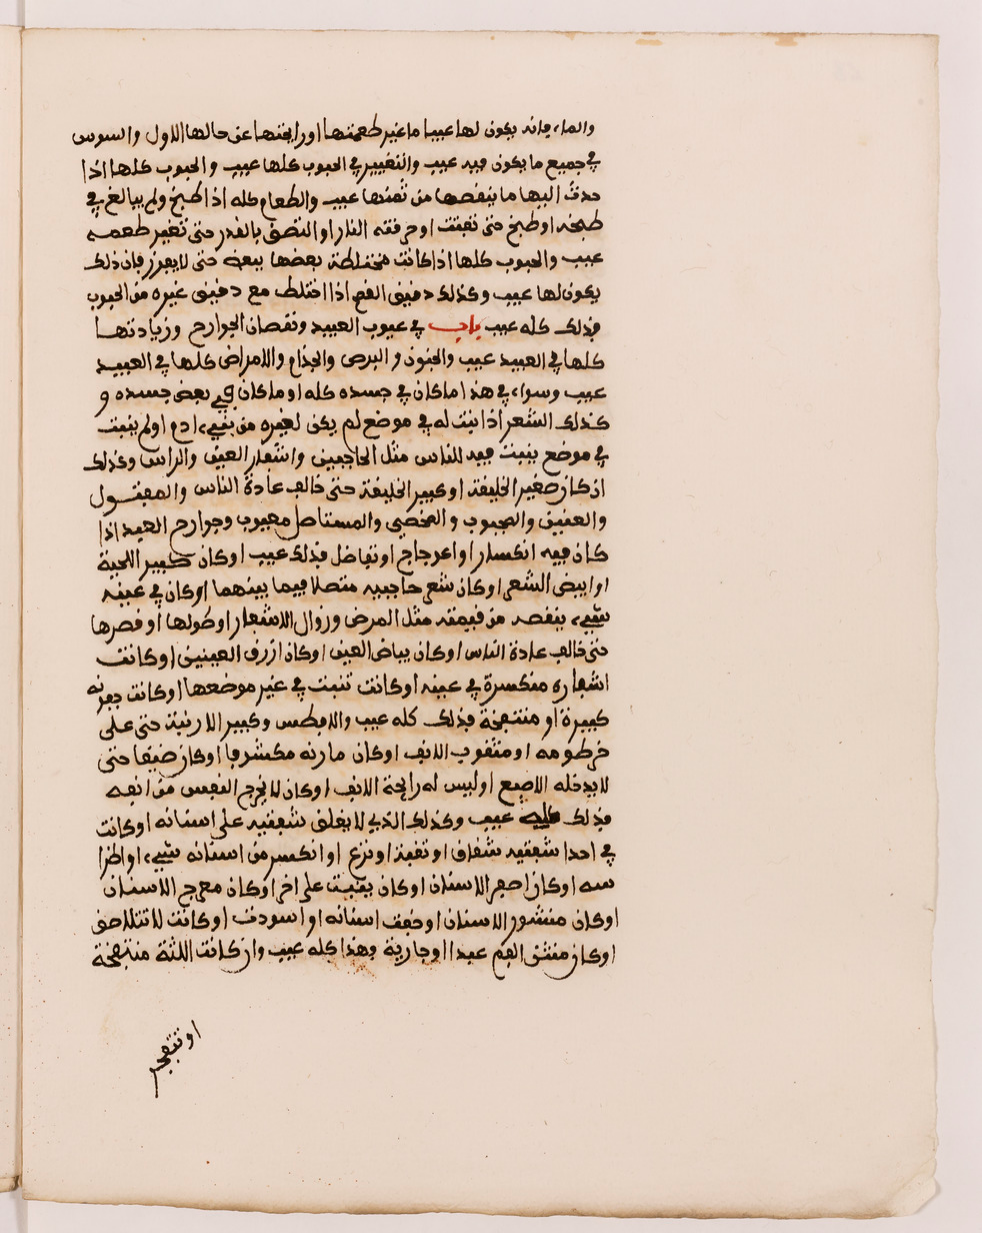 والماء فانه يكون لها عيبا ما غير طعمتها او رايحتها عن حالها الاول والسوس
في جميع ما يكون فيه عيب والتغيير في الحبوب كلها عيب والحبوب كلها اذا
حدث اليها ما ينقصها من ثمنها عيب والطعام كله اذا طبخ ولم يبالغ في
طبخه او طبخ حتى تفتت او حرقته النار او التصق بالقدر حتى تغير طعمه
عيب والحبوب كلها اذا كانت مختلطة بعضها ببعض حتى لا يفرز فان ذلك
يكون لها عيب وكذلك دقيق القمح اذا اختلط مع دقيق غيره من الحبوب
فذلك كله عيب باب في عيوب العبيد ونقصان الجوارح وزيادتها
كلها في العبيد عيب والجنون والبرص والجذام والامراض كلها في العبيد
عيب وسواء في هذا ما كان في جسده كله او ما كان في بعض جسده و
كذلك الشعر اذا نبت له في موضع لم يكن لغيره من بني ءادم او لم ينبت
في موضع ينبت فيه للناس مثل الحاجبين واشفار العين والراس وكذلك
ان كان صغير الخليقة او كبير الخليقة حتى خالف عادة الناس والمفتول
والعنين والمجبوب والمخصي والمستاصل معيوب وجوارح العبد اذا
كان فيه انكسار او اعرجاج او تفاضل فذلك عيب او كان كبير اللحية
او ابيض الشعر او كان شعر حاجبيه متصلا فيما بينهما او كان في عينه
شيء ينقصه من قيمته مثل المرض وزوال الاشفار او طولها او قصرها
حتى خالف عادة الناس او كان بياض العين او كان ازرق العينين او كانت
اشفاره منكسرة في عينه او كانت تنبت في غير موضعها او كانت جفرته
كبيرة او منتفخة فذلك كله عيب والافطس وكبير الارنبة حتى على
خرطومه او مثقوب الانف او كان مارنه مكشوفا او كان ضيقا حتى
لا يدخله الاصبع او ليس له رايحة الانف او كان لا يخرج النفس من انفه
فذلك كله عيب وكذلك الذي لا يغلق شفتيه على اسنانه او كانت
في احدا شفتيه شقاق او ثقبة او نزع او انكسر من اسنانه شيء او اضرا
سه او كان اصفر الاسنان او كان نبتت على اخر او كان معرج الاسنان
او كان منشور الاسنان او خفت اسنانه او اسودت او كانت لا تتلاصق
او كان منتن الفم عبدا او جارية فهذا كله عيب وان كانت اللثة منتفخة
او تنفجر